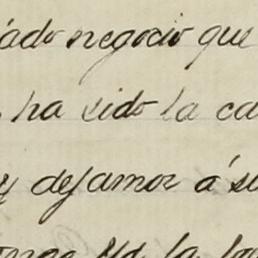 negocio que
ha sido la ca
y dejamos á su
la